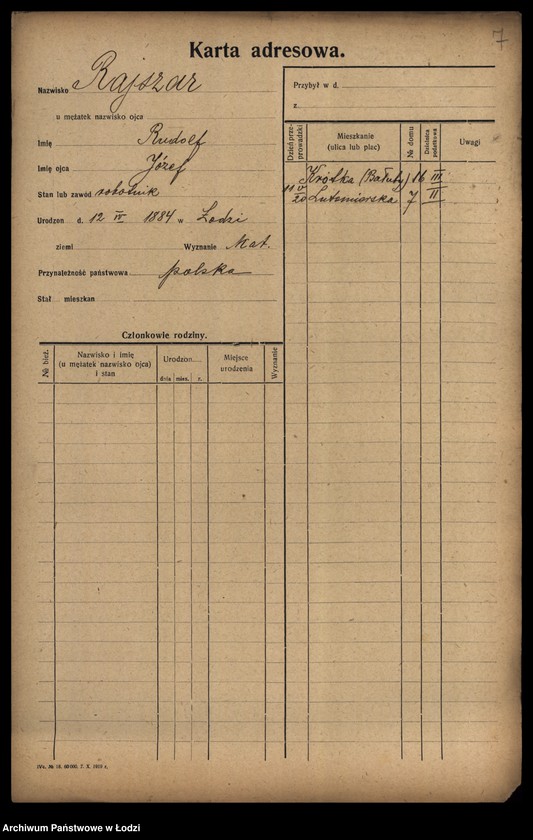 7
Karta adresowa.
Nazwisko Rajszar
u mężatek nazwisko ojca
Imię Rudolf
Imię ojca Józef
Stan lub zawód robotnik
Urodzon d. 12 IV 1884 w Łodzi
ziemi Wyznanie Mat.
Przynależność państwowa polska
Stał mieszkan
Członkowie rodziny.
№ bież. Nazwisko i imię (u mężatek nazwisko ojca) i stan Urodzon Miejsce urodzenia Wyznanie
dnia mies. r.
Przybył w d.
z
Dzień przeprowadzki Mieszkanie (ulica lub plac) № domu Dzielnica podatkowa Uwagi
Krótka (Bałuty) 16 III
11 IV 20 Lutomiorska 7 II
Archiwum Państwowe w Łodzi